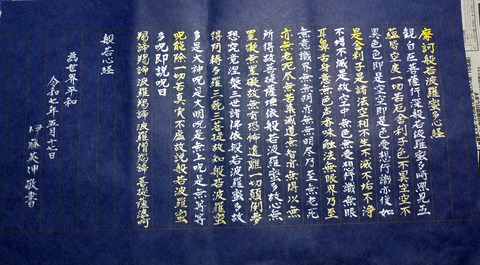 摩訶般若波羅蜜多心経
観自在菩薩行深般若波羅蜜多時照見五
蘊皆空度一切苦厄舎利子色不異空空不
異色色即是空空即是色受想行識亦復如
是舎利子是諸法空相不生不滅不垢不浄
不増不減是故空中無色無受想行識無眼
耳鼻舌身意無色声香味触法無眼界乃至
無意識界無無明亦無無明尽乃至無老死
亦無老死尽無苦集滅道無智亦無得以無
所得故菩提薩埵依般若波羅蜜多故心無
罣礙無罣礙故無有恐怖遠離一切顛倒夢
想究竟涅槃三世諸佛依般若波羅蜜多故
得阿耨多羅三藐三菩提故知般若波羅蜜
多是大神呪是大明呪是無上呪是無等等
呪能除一切苦真実不虚故説般若波羅蜜
多呪即説呪曰
羯諦羯諦 波羅羯諦 波羅僧羯諦 菩提薩婆訶
般若心経
為世界平和
令和七年五月十七日
伊藤英 敬書